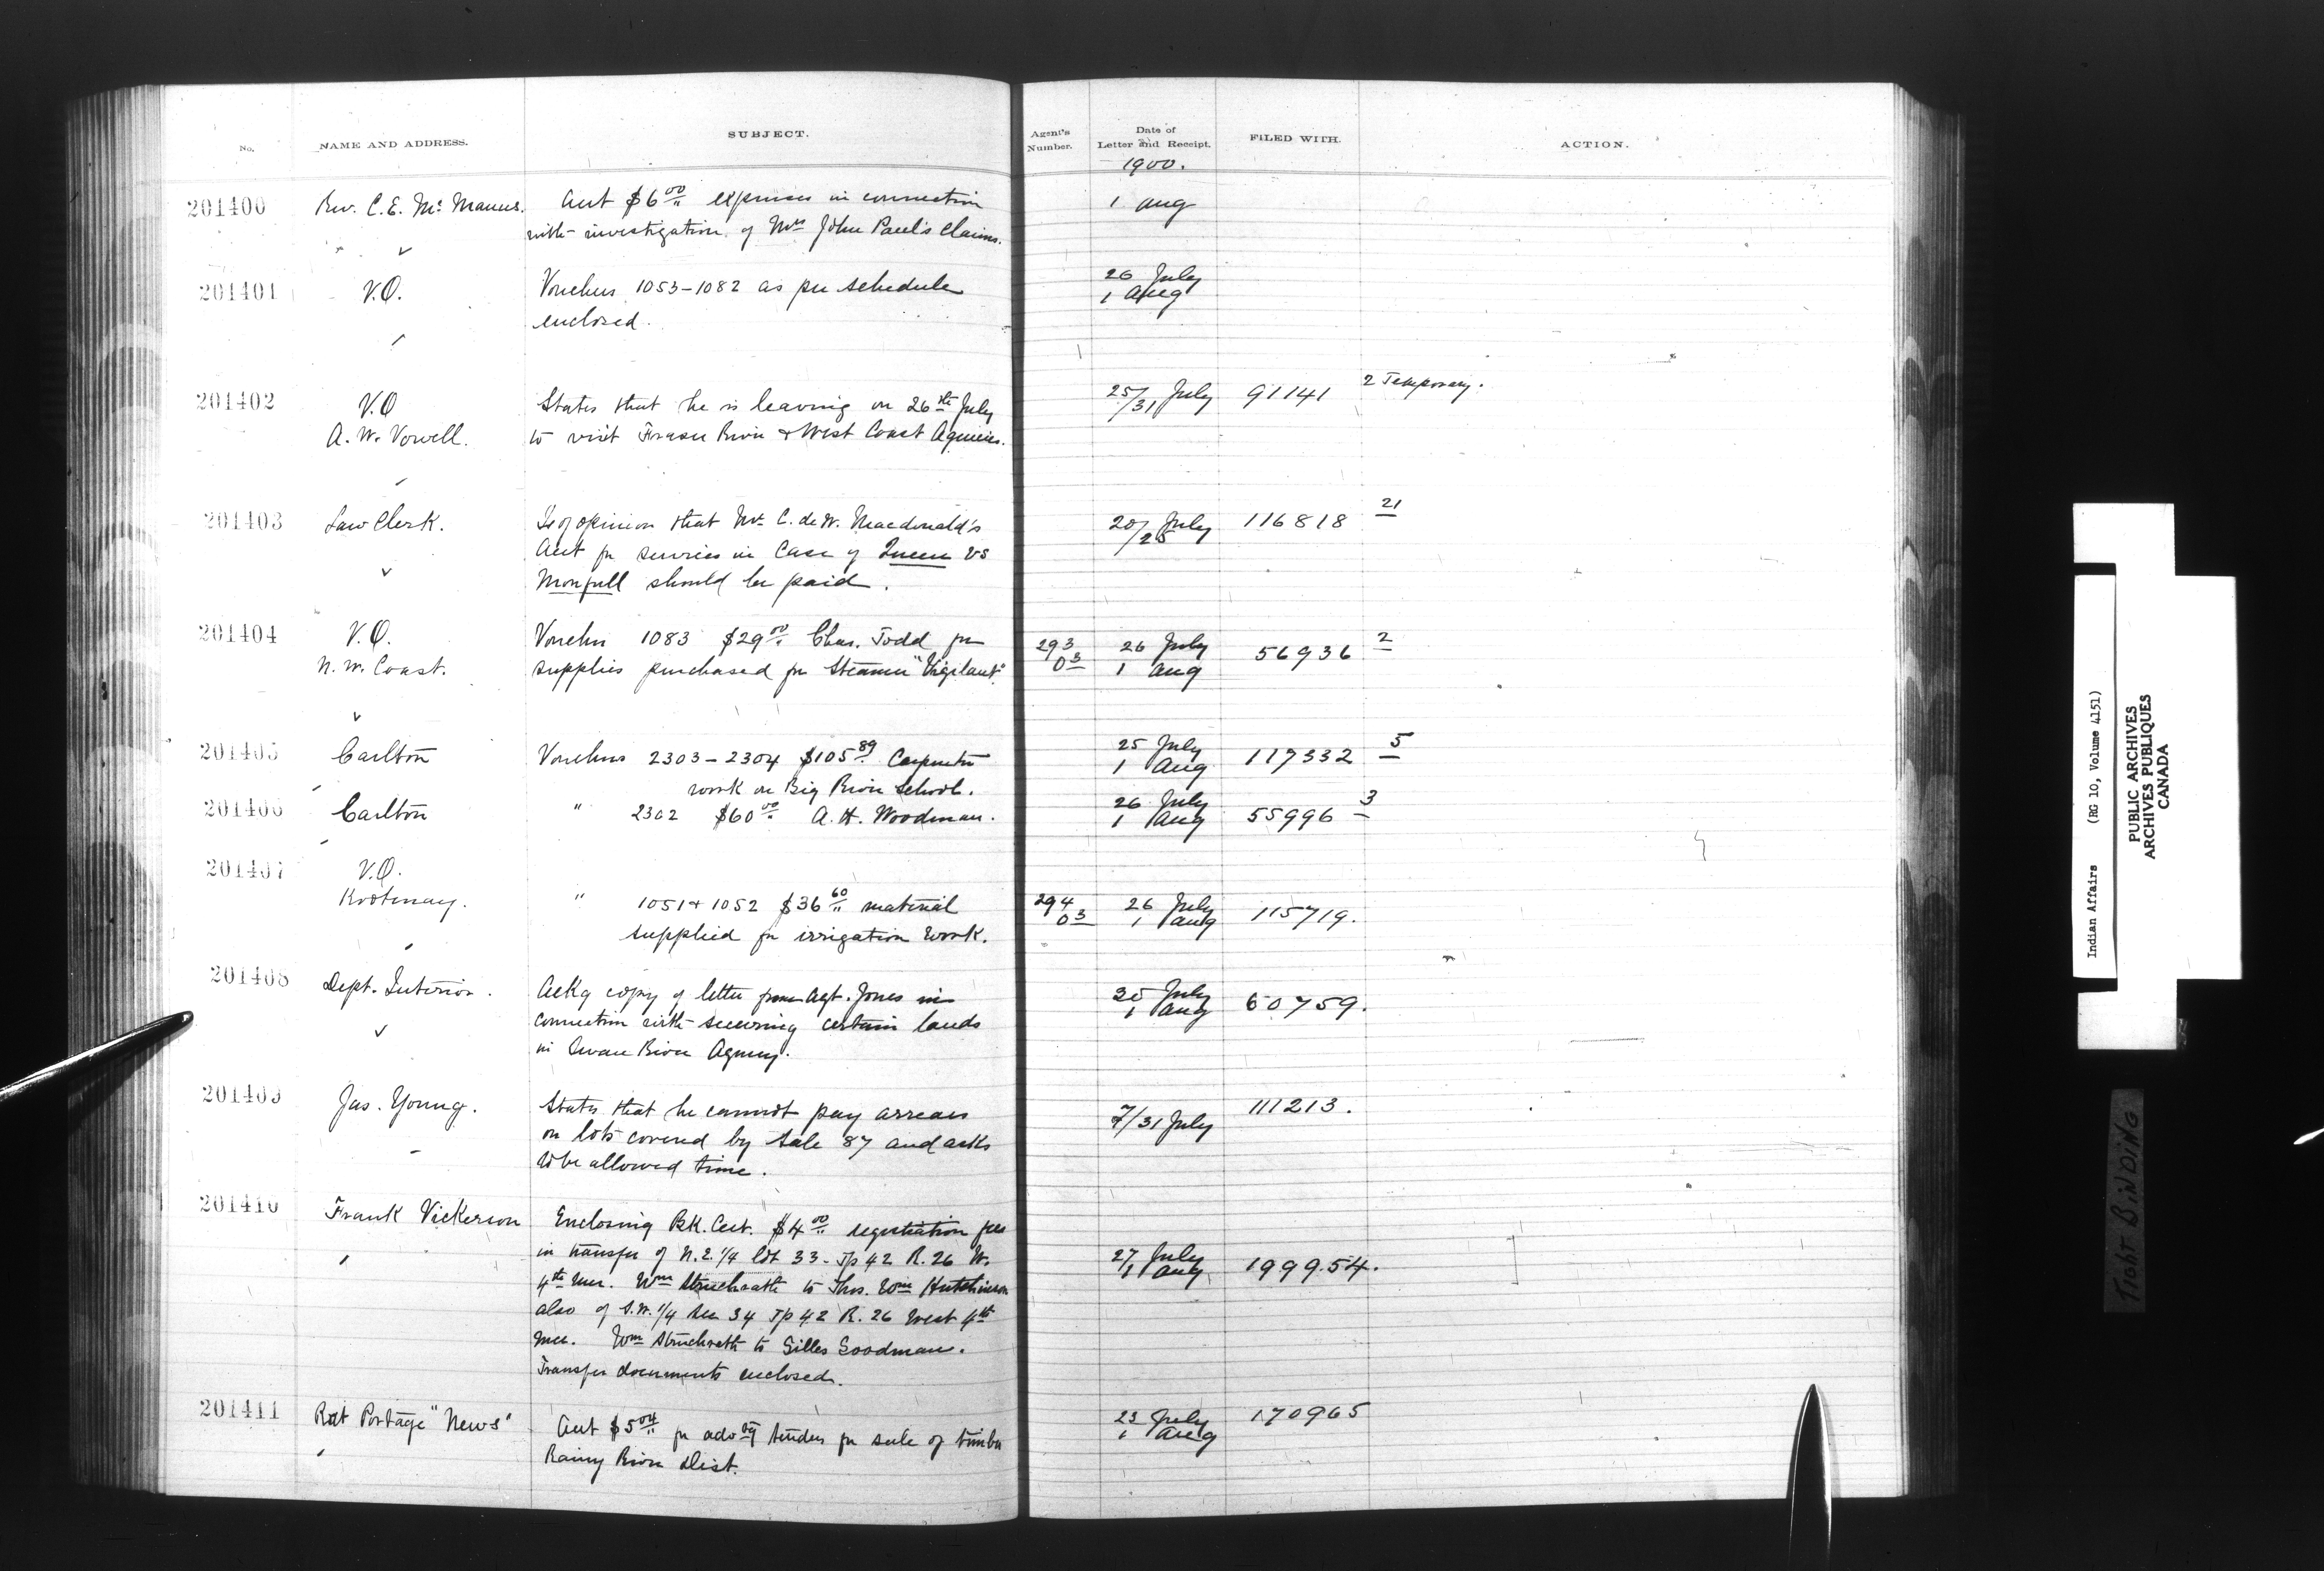 No. NAME AND ADDRESS. SUBJECT. Agent's Number. Date of Letter and Receipt. FILED WITH. ACTION.
1900.
201400 Rev. C.E. McManus. Acct $6.00 expenses in connection 1 Aug
with investigation of Mrs John Paul's Claims.
201401 V.O. Vouchers 1053-1082 as per schedule 26 July
enclosed. 1 Aug
201402 V.O States that he is leaving on 26th July 25/31 July 91141 2 Temporary.
A. W. Vowell. to visit Fraser River & West Coast Agencies.
201403 Law Clerk. Is of opinion that Mr C. de W. Macdonald's 20/25 July 116818 21
Acct for services in Case of Queen vs
should be paid.
201404 V.O. Voucher 1083 $29.00 Chas. Todd for 293 26 July 56936 2
N. W. Coast. supplies purchased for Steamer "Vigilant" 03 1 Aug
201405 Carlton Vouchers 2303-2304 $105.89 Carpenter 25 July 117332 5
work on Big River School. 1 Aug
201406 Carlton " 2302 $60.00 A. H. Woodman. 26 July 55996 3
1 Aug
201407 V.O.
Kootenay. " 1051 & 1052 $36.60 material 294 26 July 115719.
supplied for irrigation work. 03 1 Aug
201408 Dept. Interior. Ackg copy of letter from Agt. Jones in July 60759.
connection with securing certain lands 1 Aug
in Swan River Agency.
201409 Jas. Young. States that he cannot pay arrears 7/31 July 111213.
on lots covered by Sale 87 and asks
to be allowed time.
201410 Frank Vickerson Enclosing Bk. Cert. $4.00 registration fees
in transfer of N.E. 1/4 33- Tp 42 R. 26 W. 27 July 199954.
4th Mer. Wm to Thos. Wm Hutchinson 1 Aug
also of S.W. 1/4 Sec 34 Tp 42 R. 26 West 4th
Mer. Wm to Gilles Goodman.
Transfer documents enclosed.
201411 Rat Portage "News" Acct $5.04 for advtg tenders for sale of timber 23 July 170965
Rainy River Dist. 1 Aug
Indian Affairs (RG 10, Volume 4151)
PUBLIC ARCHIVES
ARCHIVES PUBLIQUES
CANADA
TIGHT BINDING